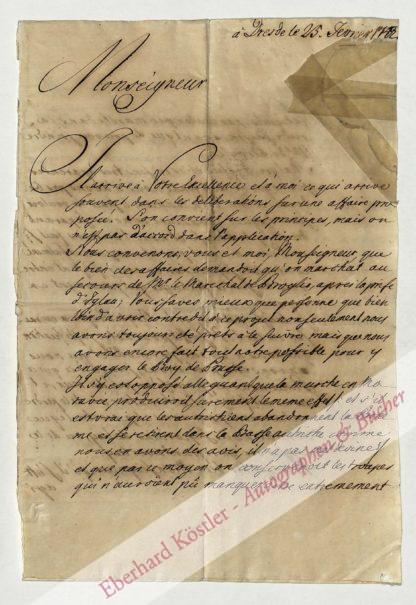 à Dresde le 25. Fevrier 1742.
Monseigneur
Il arrive à Votre Excellence et à moi ce qui arrive
souvent dans les deliberations sur une affaire pro
posée. l'on convient sur les principes, mais on
n'est pas d'accord dans l'application.
Nous convenons, vous et moi, Monseigneur que
le bien des affaires demandoit qu'on marchat au
secours de Mr. le Marechal de Broglio, après la prise
d'Iglau; vous savez mieux que personne que bien
loin d'avoir contredit ce projet non seulement nous
avons toujours été prets à le suivre mais que nous
avons encore fait tout notre possible pour y
engager le Roy de Prusse.
Il s'y est opposé alleguant que la marche en Mo
ravie produiroit surement le meme effet, et s'il
est vrai que les autrichiens abandonnent la
me et se retirent dans la Basse autriche comme
nous en avons des avis, il n'a pas
et que par ce moyen on conserveroit les troupes
qui n'auroient pû manquer de extremement
Eberhard Köstler - Autographen & Bücher